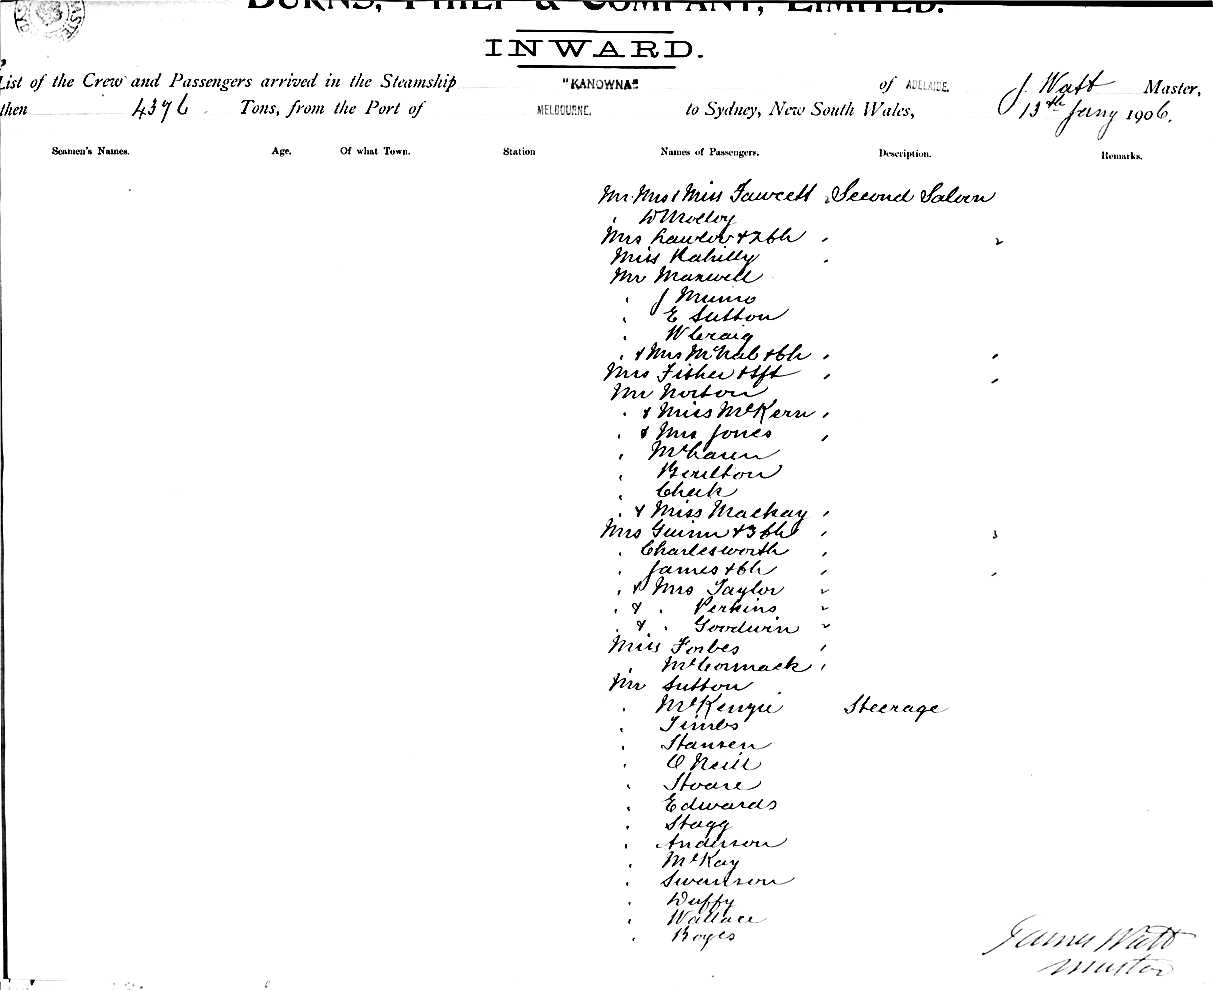 BURNS, PHILP & COMPANY, LIMITED.
INWARD.
List of the Crew and Passengers arrived in the Steamship "KANOWNA" of ADELAIDE, J Watt Master,
then 4376 Tons, from the Port of MELBOURNE. to Sydney, New South Wales, 13th Jany 1906.
Seamen's Names. Age. Of what Town. Station Names of Passengers. Description. Remarks.
Mr Mrs & Miss Fawcett Second Saloon
" W Molloy
Mrs Lawlor & 2 ch " 2
Miss Rahilly "
Mr Maxwell
" J Munro
" E Sutton
" W Craig
" & Mrs McNab & ch " "
Mrs Fisher & Ift " "
Mr Norton
" & Miss McKern "
" & Mrs Jones "
" McLaren
" Boulton
" Cheek
" & Miss Mackay "
Mrs Guinn & 3 ch " 3
" Charlesworth "
" James & ch " "
" & Mrs Taylor "
" & " Perkins "
" & " Goodwin "
Miss Forbes "
" McCormack "
Mr Sutton
" McKenzie Steerage
" Timbs
" Stansen
" O'Neill
" Hoare
" Edwards
" Stagg
" Anderson
" McKay
" Swanson
" Duffy
" Wallace
" Boyes
James Watt
Master